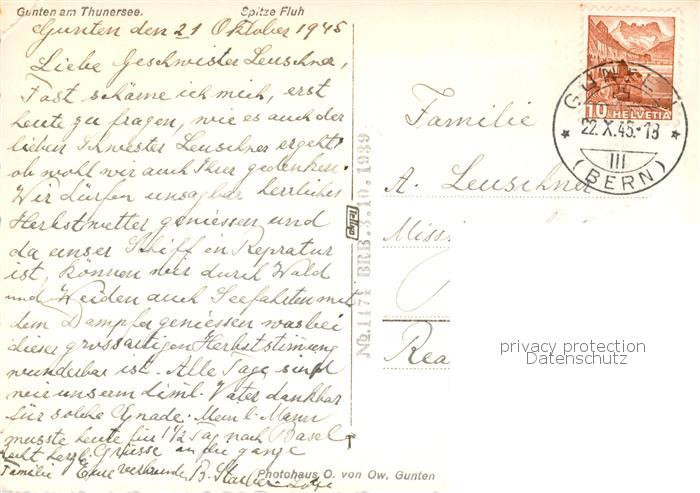 Gunten am Thunersee. Spitze Fluh
Gunten den 21 Oktober 1945
Liebe Geschwister Leuschner,
Fast schäme ich mich, erst
heute zu fragen, wie es auch der
lieben Schwester Leuschner ergeht
ob wohl wir auch Ihrer gedenken.
Wir dürfen unsagbar herrliches
Herbstwetter geniessen und
da unser Schiff in Repratur
ist, können wir durch Wald
und Weiden auch Seefahrten mit
dem Dampfer geniessen was bei
dieser grossartigen Herbststimmung
wunderbar ist. Alle Tage sind
wir unserm himl. Vater dankbar
für solche Gnade. Mein l. Mann
musste heute für 1 1/2 Tag nach Basel
recht herzl. Grüsse an die ganze
Familie Eure verbundene B.
Photohaus O. von Ow. Gunten
Tellko
No. 1474 BRB. 3.10.1939
Familie
A. Leuschner
Miss
Rea
10 HELVETIA
GUNTEN
22.X.45-18
III
(BERN)
privacy protection
Datenschutz